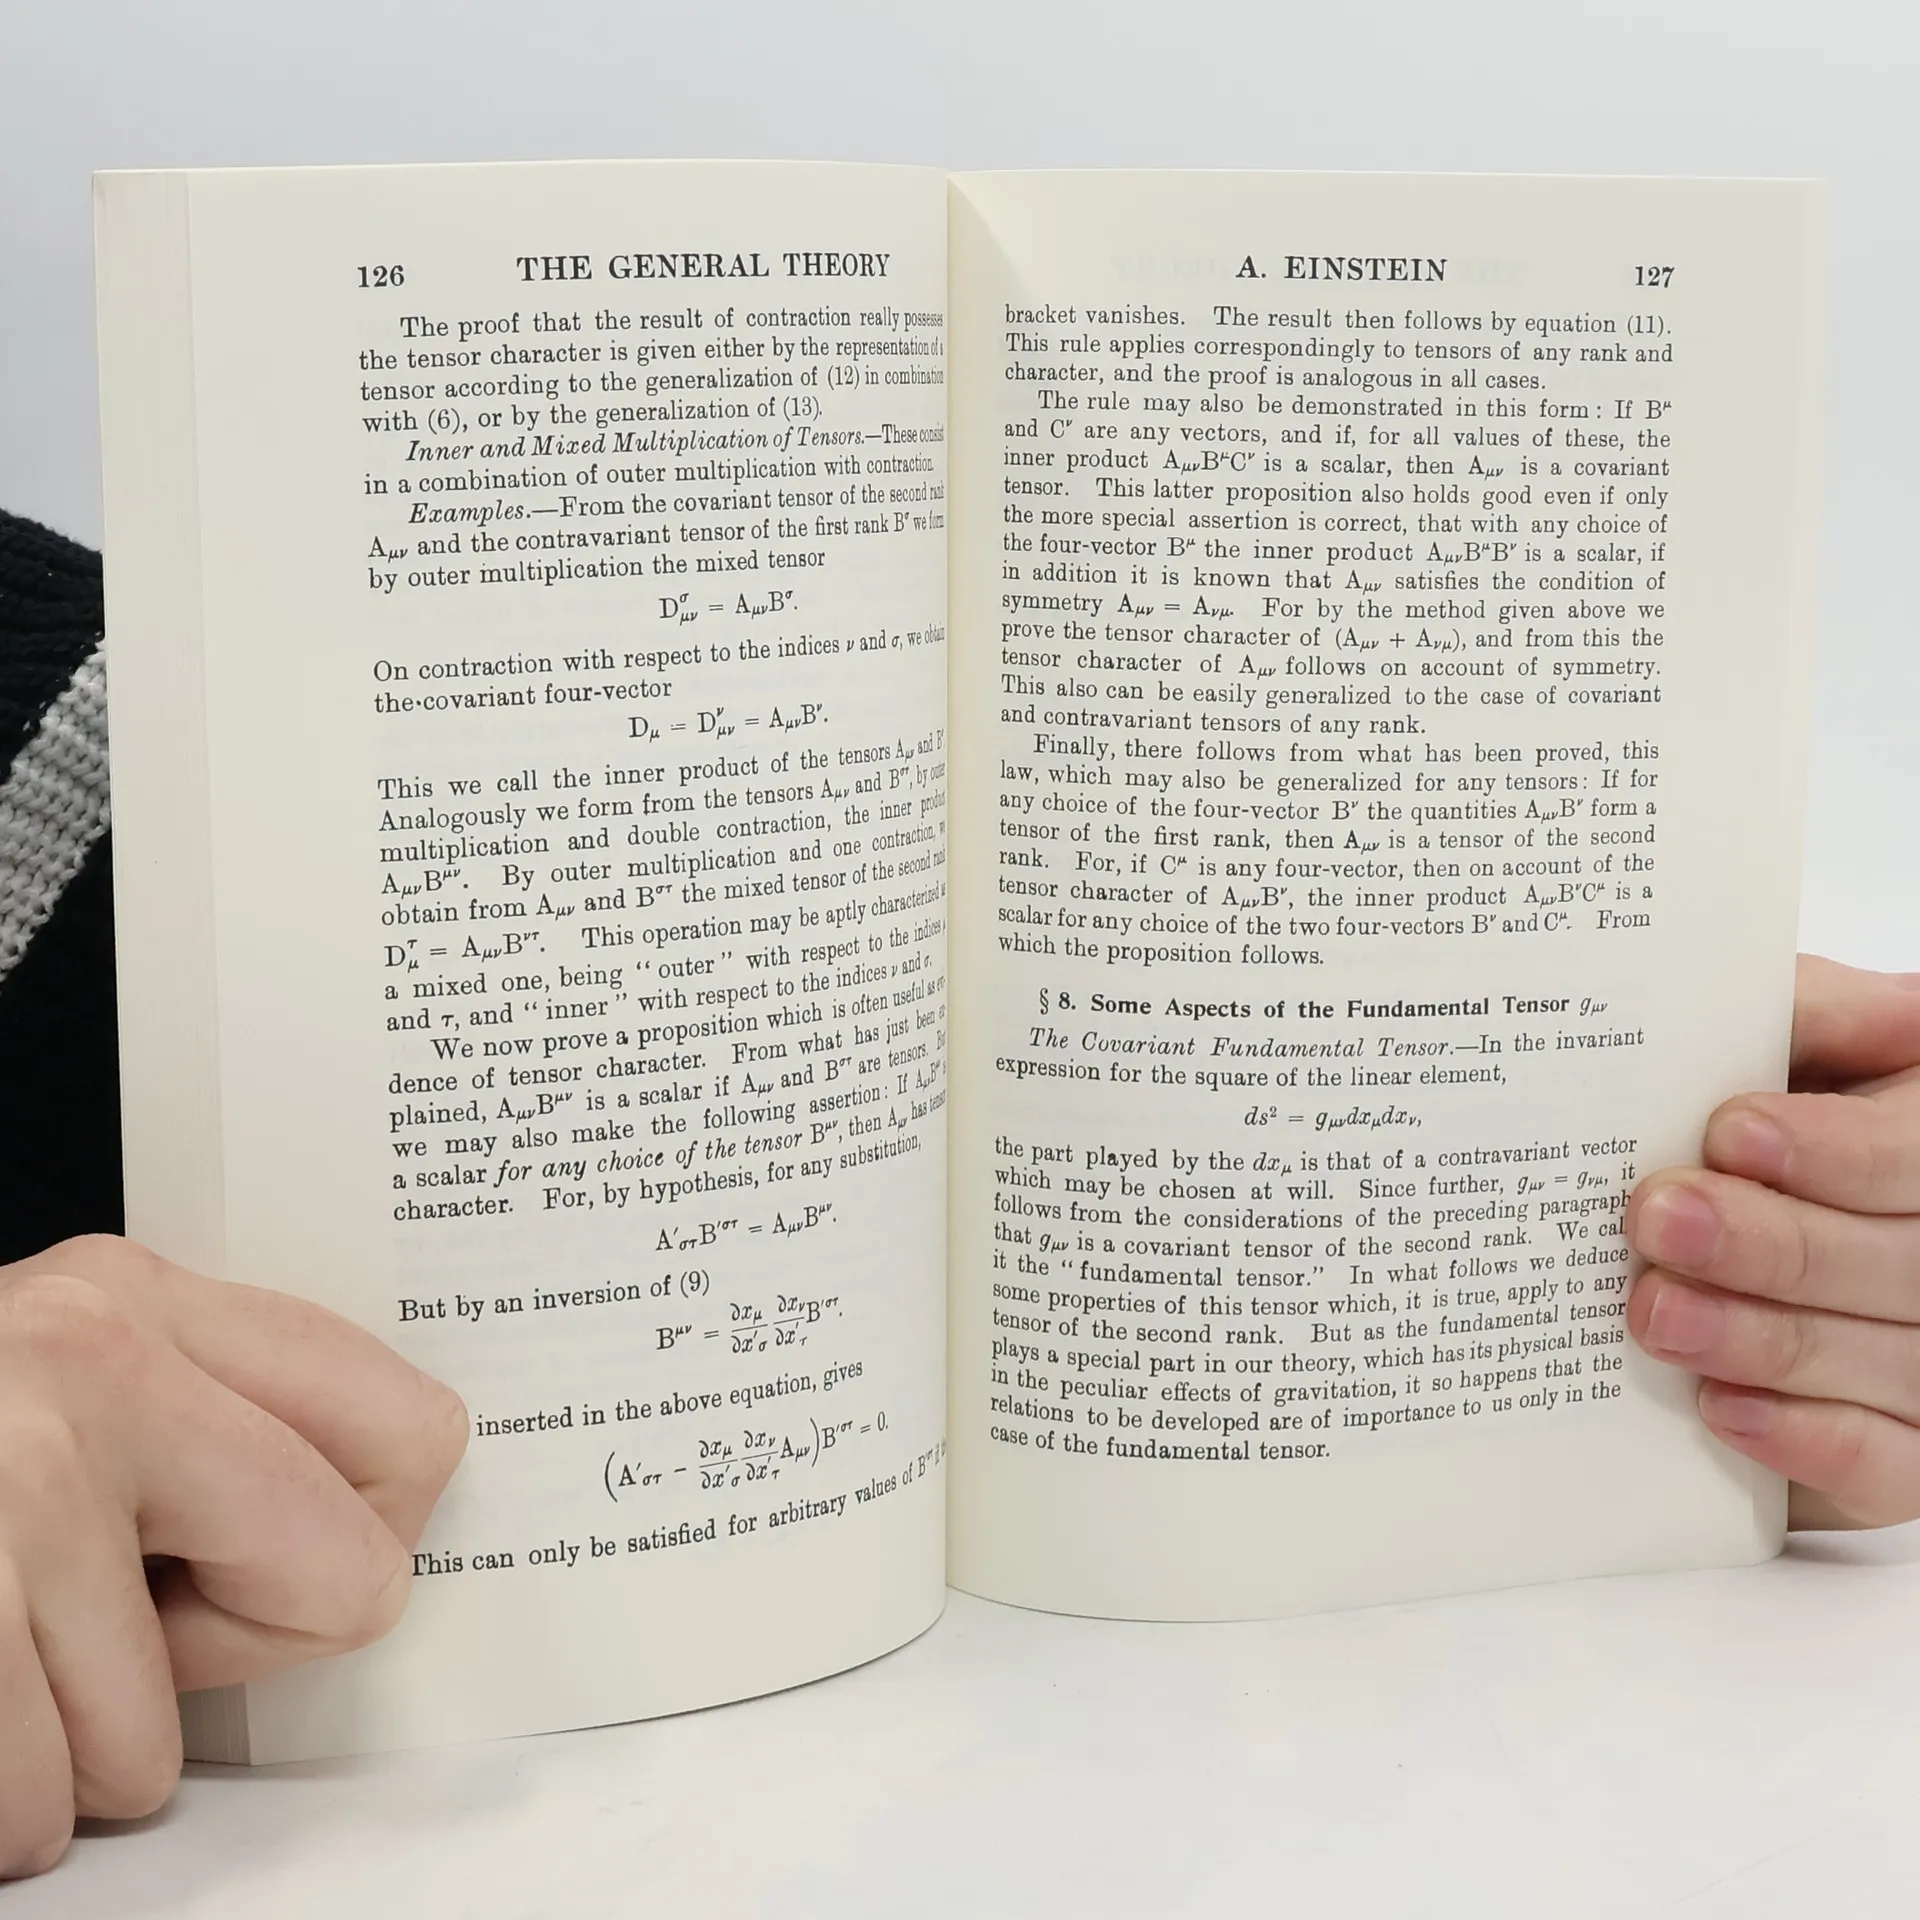 126 THE GENERAL THEORY
The proof that the result of contraction really possesses
the tensor character is given either by the representation of a
tensor according to the generalization of (12) in combination
with (6), or by the generalization of (13).
Inner and Mixed Multiplication of Tensors.—These consist
in a combination of outer multiplication with contraction.
Examples.—From the covariant tensor of the second rank
Aμν and the contravariant tensor of the first rank Bσ we form
by outer multiplication the mixed tensor
Dσμν = AμνBσ.
On contraction with respect to the indices ν and σ, we obtain
the covariant four-vector
Dμ = Dνμν = AμνBν.
This we call the inner product of the tensors Aμν and Bσ.
Analogously we form from the tensors Aμν and Bστ, by outer
multiplication and double contraction, the inner product
AμνBμν. By outer multiplication and one contraction, we
obtain from Aμν and Bστ the mixed tensor of the second rank
Dτμ = AμνBντ. This operation may be aptly characterized as
a mixed one, being “outer” with respect to the indices
and τ, and “inner” with respect to the indices ν and σ.
We now prove a proposition which is often useful as evi-
dence of tensor character. From what has just been ex-
plained, AμνBμν is a scalar if Aμν and Bστ are tensors. But
we may also make the following assertion: If AμνBμν is
a scalar for any choice of the tensor Bμν, then Aμν has tensor
character. For, by hypothesis, for any substitution,
A′στB′στ = AμνBμν.
But by an inversion of (9)
Bμν = ∂xμ/∂x′σ ∂xν/∂x′τ B′στ.
inserted in the above equation, gives
(A′στ − ∂xμ/∂x′σ ∂xν/∂x′τ Aμν)B′στ = 0.
This can only be satisfied for arbitrary values of B′στ if the
A. EINSTEIN 127
bracket vanishes. The result then follows by equation (11).
This rule applies correspondingly to tensors of any rank and
character, and the proof is analogous in all cases.
The rule may also be demonstrated in this form: If Bμ
and Cν are any vectors, and if, for all values of these, the
inner product AμνBμCν is a scalar, then Aμν is a covariant
tensor. This latter proposition also holds good even if only
the more special assertion is correct, that with any choice of
the four-vector Bμ the inner product AμνBμBν is a scalar, if
in addition it is known that Aμν satisfies the condition of
symmetry Aμν = Aνμ. For by the method given above we
prove the tensor character of (Aμν + Aνμ), and from this the
tensor character of Aμν follows on account of symmetry.
This also can be easily generalized to the case of covariant
and contravariant tensors of any rank.
Finally, there follows from what has been proved, this
law, which may also be generalized for any tensors: If for
any choice of the four-vector Bν the quantities AμνBν form a
tensor of the first rank, then Aμν is a tensor of the second
rank. For, if Cμ is any four-vector, then on account of the
tensor character of AμνBν, the inner product AμνBνCμ is a
scalar for any choice of the two four-vectors Bν and Cμ. From
which the proposition follows.
§ 8. Some Aspects of the Fundamental Tensor gμν
The Covariant Fundamental Tensor.—In the invariant
expression for the square of the linear element,
ds² = gμνdxμdxν,
the part played by the dxμ is that of a contravariant vector
which may be chosen at will. Since further, gμν = gνμ, it
follows from the considerations of the preceding paragraph
that gμν is a covariant tensor of the second rank. We call
it the “fundamental tensor.” In what follows we deduce
some properties of this tensor which, it is true, apply to any
tensor of the second rank. But as the fundamental tensor
plays a special part in our theory, which has its physical basis
in the peculiar effects of gravitation, it so happens that the
relations to be developed are of importance to us only in the
case of the fundamental tensor.